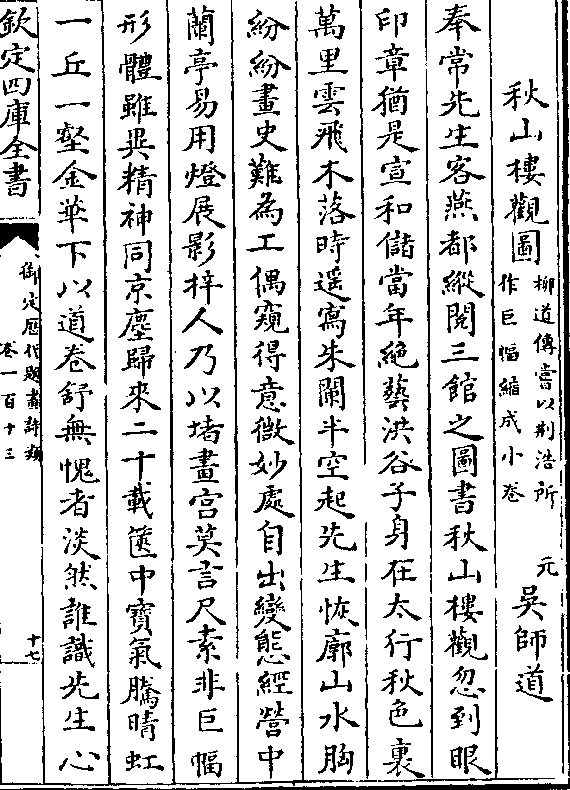 秋山樓觀圖 柳道傳嘗以荆浩所作巨幅縮成小卷 元 吳師道
奉常先生客燕都縱閱三館之圖書秋山樓觀忽到眼
印章猶是宣和儲當年絶藝洪谷子身在太行秋色裏
萬里雲飛木落時遥寫朱闌半空起先生恢廓山水胸
紛紛畫史難為工偶窺得意微妙處自出變態經營中
蘭亭易用燈展影梓人乃以堵畫宫莫言尺素非巨幅
形體雖異精神同京塵歸來二十載篋中寳氣騰晴虹
一丘一壑金華下以道卷舒無愧者淡然誰識先生心
欽定四庫全書
御定歷代題畫詩類
卷一百十三
十七